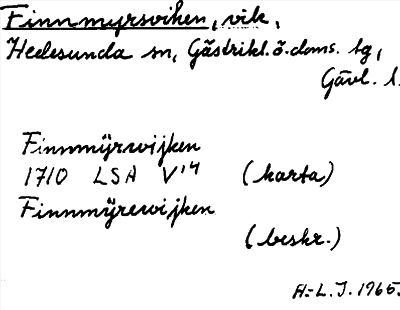 Finnmyrsviken, vik,
Hedesunda sn, Gästrikl. ö. doms. tg,
Gävl. l.
Finnmÿrswijken
1710 LSA V¹⁴ (karta)
Finnmÿreswijken
(beskr.)
H=L. J. 1965.